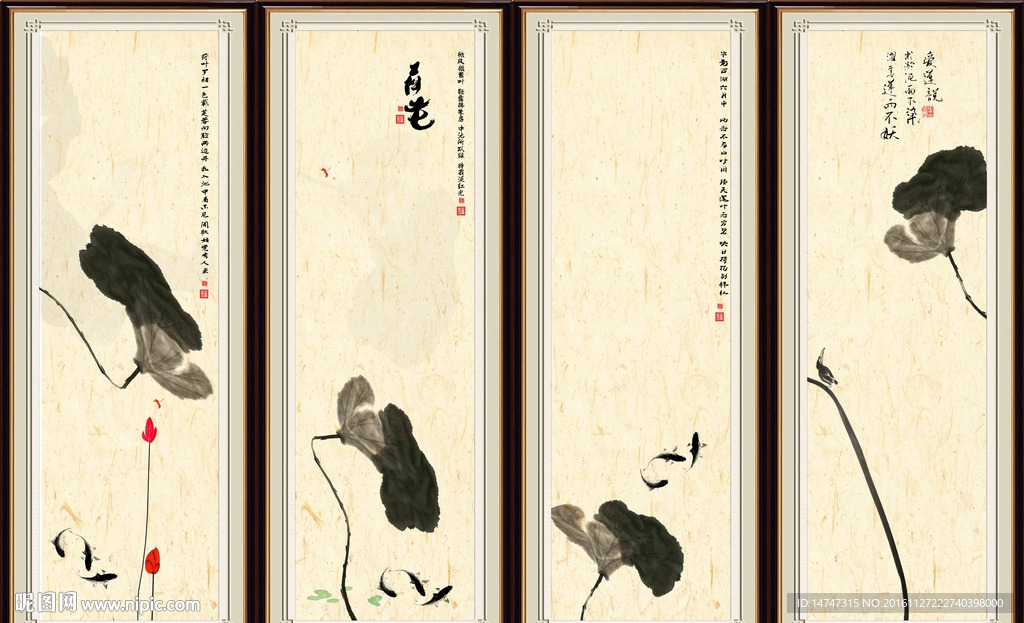 荷叶罗裙一色裁 芙蓉向脸两边开 乱入池中看不见 闻歌始觉有人来
荷花
微风摇紫叶 轻露拂朱房 中池所以绿 待我泛红光
毕竟西湖六月中 风光不与四时同 接天莲叶无穷碧 映日荷花别样红
爱莲说
出淤泥而不染
濯清涟而不妖
昵图网 www.nipic.com
ID:14747315 NO:20161127222740398000